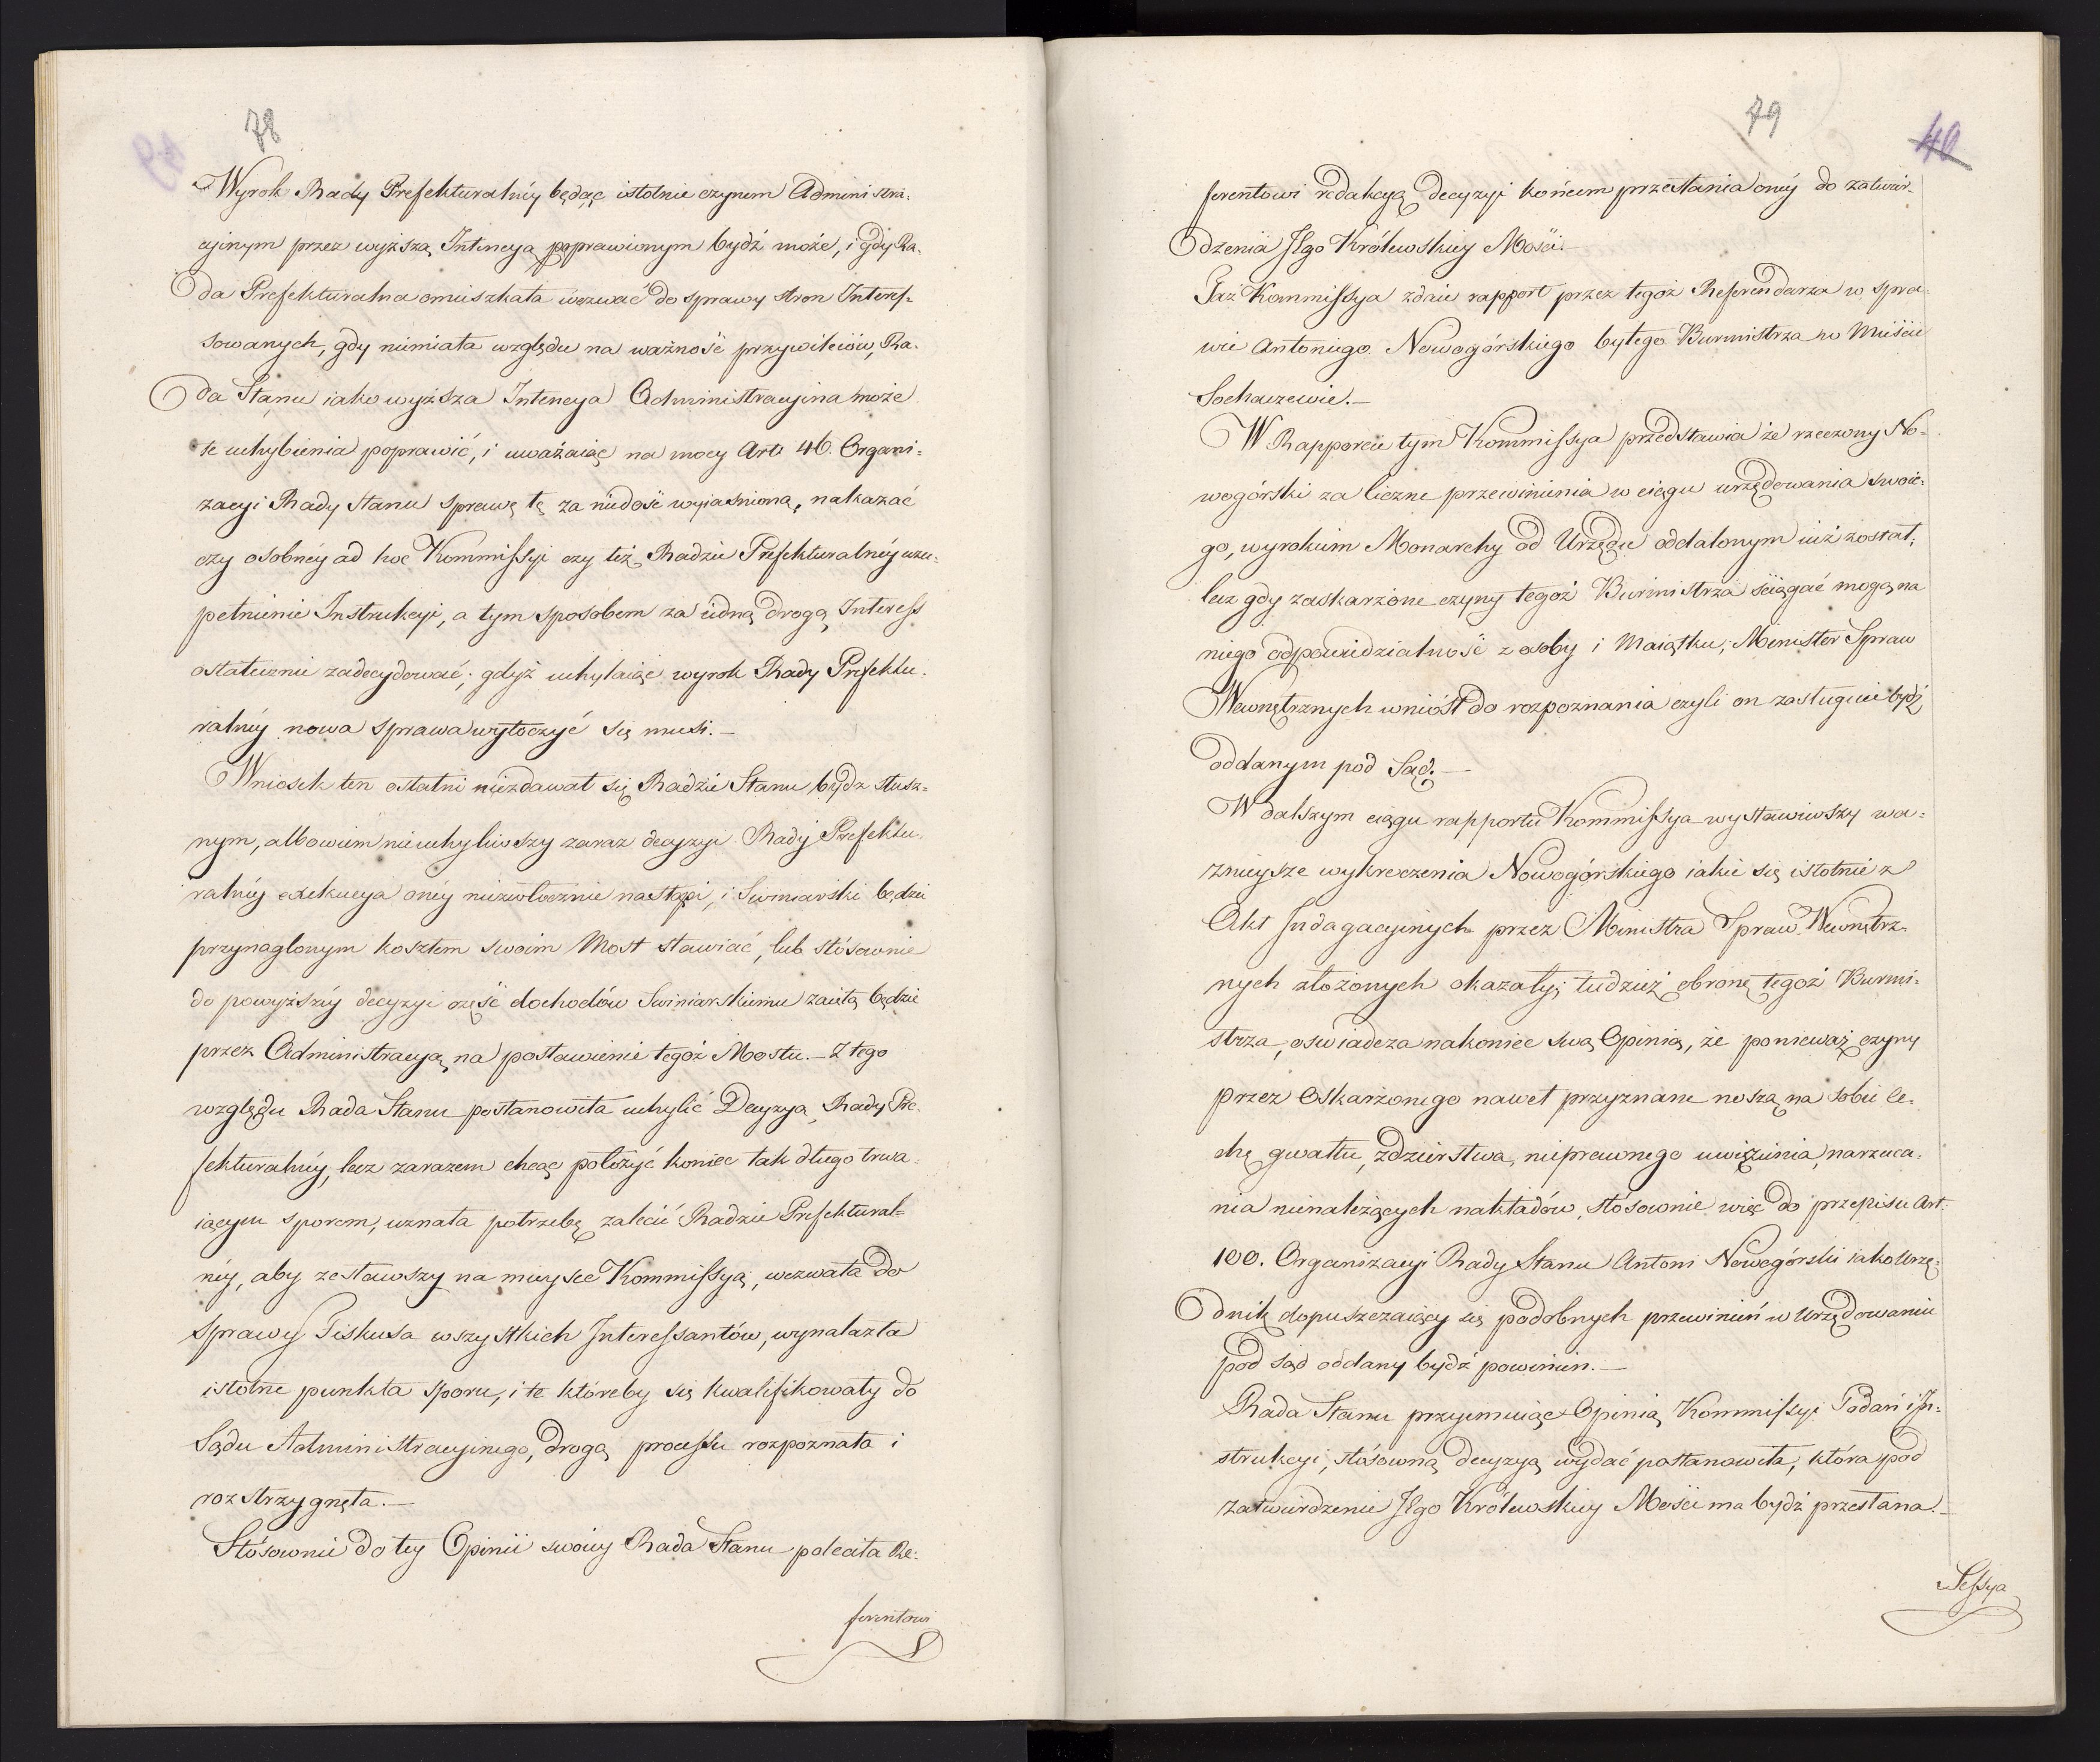 78
Wyrok Rady Prefekturalnéy będąc istotnie czynem Administra:
cyinym przez wyższą Intencyą poprawionym bydź może, i gdy Ra:
da Prefekturalna omieszkała wezwać do sprawy stron Interes-
sowanych, gdy niemiała względu na ważność przywileiów, Ra:
da Stanu iako wyższa Intencya Administracyina może
te uchybienia poprawić, i uważaiąc na mocy Art: 46. Organi:
zacyi Rady Stanu sprawę tę za niedość wyiaśnioną, nakazać
czy osobnéy ad hoc Kommissyi czy też Radzie Prefekturalnéy uzu:
pełnienie Instrukcyi, a tym sposobem za iedną drogą Interess
ostatecznie zadecydować; gdyż uchylaiąc wyrok Rady Prefektu:
ralnéy nowa sprawa wytoczyć się musi.—
Wniosek ten ostatni niezdawał się Radzie Stanu bydz słusz=
nym, albowiem nieuchyliwszy zaraz decyzyi Rady Prefektu:
ralnéy exekucya onéy niezwłocznie nastąpi, i Swiniarski będzie
przynaglonym kosztem swoim Most stawiać, lub stósownie
do powyższéy decyzyi część dochodów Swiniarskiemu zaiętą będzie
przez Administracyą na postawienie tegóż Mostu.— Z tego
względu Rada Stanu postanowiła uchylić Decyzyą Rady Pre:
fekturalnéy, lecz zarazem chcąc położyć koniec tak długo trwa:
iącym sporem, uznała potrzebę zalecić Radzie Prefektural=
néy, aby zesławszy na mieysce Kommissyą, wezwała do
sprawy Fiskusa wszystkich Interessantów, wynalazła
istotne punkta sporu, i te któreby się kwalifikowały do
Sądu Administracyinego, drogą processu rozpoznała i
rozstrzygnęła.—
Stósownie do tey Opinii swoiey Rada Stanu poleciła Re:
ferentowi
79
40
ferentowi redakcyą decyzyi końcem przesłania onéy do zatwier:
dzenia Jego Królewskiey Mości.—
Taż Kommissya zdaie rapport przez tegoż Referendarza w spra:
wie Antoniego Nowogórskiego byłego Burmistrza w Mieście
Sochaczewie.—
W Rapporcie tym Kommissya przedstawia że rzeczony No=
wogórski za liczne przewinienia w ciągu urzędowania swoie:
go, wyrokiem Monarchy od Urzędu oddalonym iuż został;
lecz gdy zaskarżone czyny tegoż Burmistrza sciągać mogą na
niego odpowiedzialność z osoby i Maiątku, Minister Spraw
Wewnętrznych wniósł do rozpoznania czyli on zasługuie bydź
oddanym pod Sąd.—
W dalszym ciągu rapportu Kommissya wystawiwszy wa=
żnieysze wykroczenia Nowogórskiego iakie się istotnie z
Akt Indagacyinych przez Ministra Spraw Wewnętrz=
nych złożonych okazały; tudzież obronę tegoż Burmi:
strza, oswiadcza nakoniec swą Opinią, że ponieważ czyny
przez Oskarżonego nawet przyznane noszą na sobie ce:
chę gwałtu, zdzierstwa, nieprawnego uwięzienia, narzuca:
nia nienależących nakładów, stósownie więc do przepisu Art:
100. Organizacyi Rady Stanu Antoni Nowogórski iako Urzę:
dnik dopuszczaiący się podobnych przewinień w Urzędowaniu
pod sąd oddany bydź powinien.—
Rada Stanu przyimuiąc Opinią Kommissyi Podań i In:
strukcyi, stósowną decyzyą wydać postanowiła, która pod
zatwierdzenie Jego Królewskiey Mości ma bydź przesłana.—
Sessya